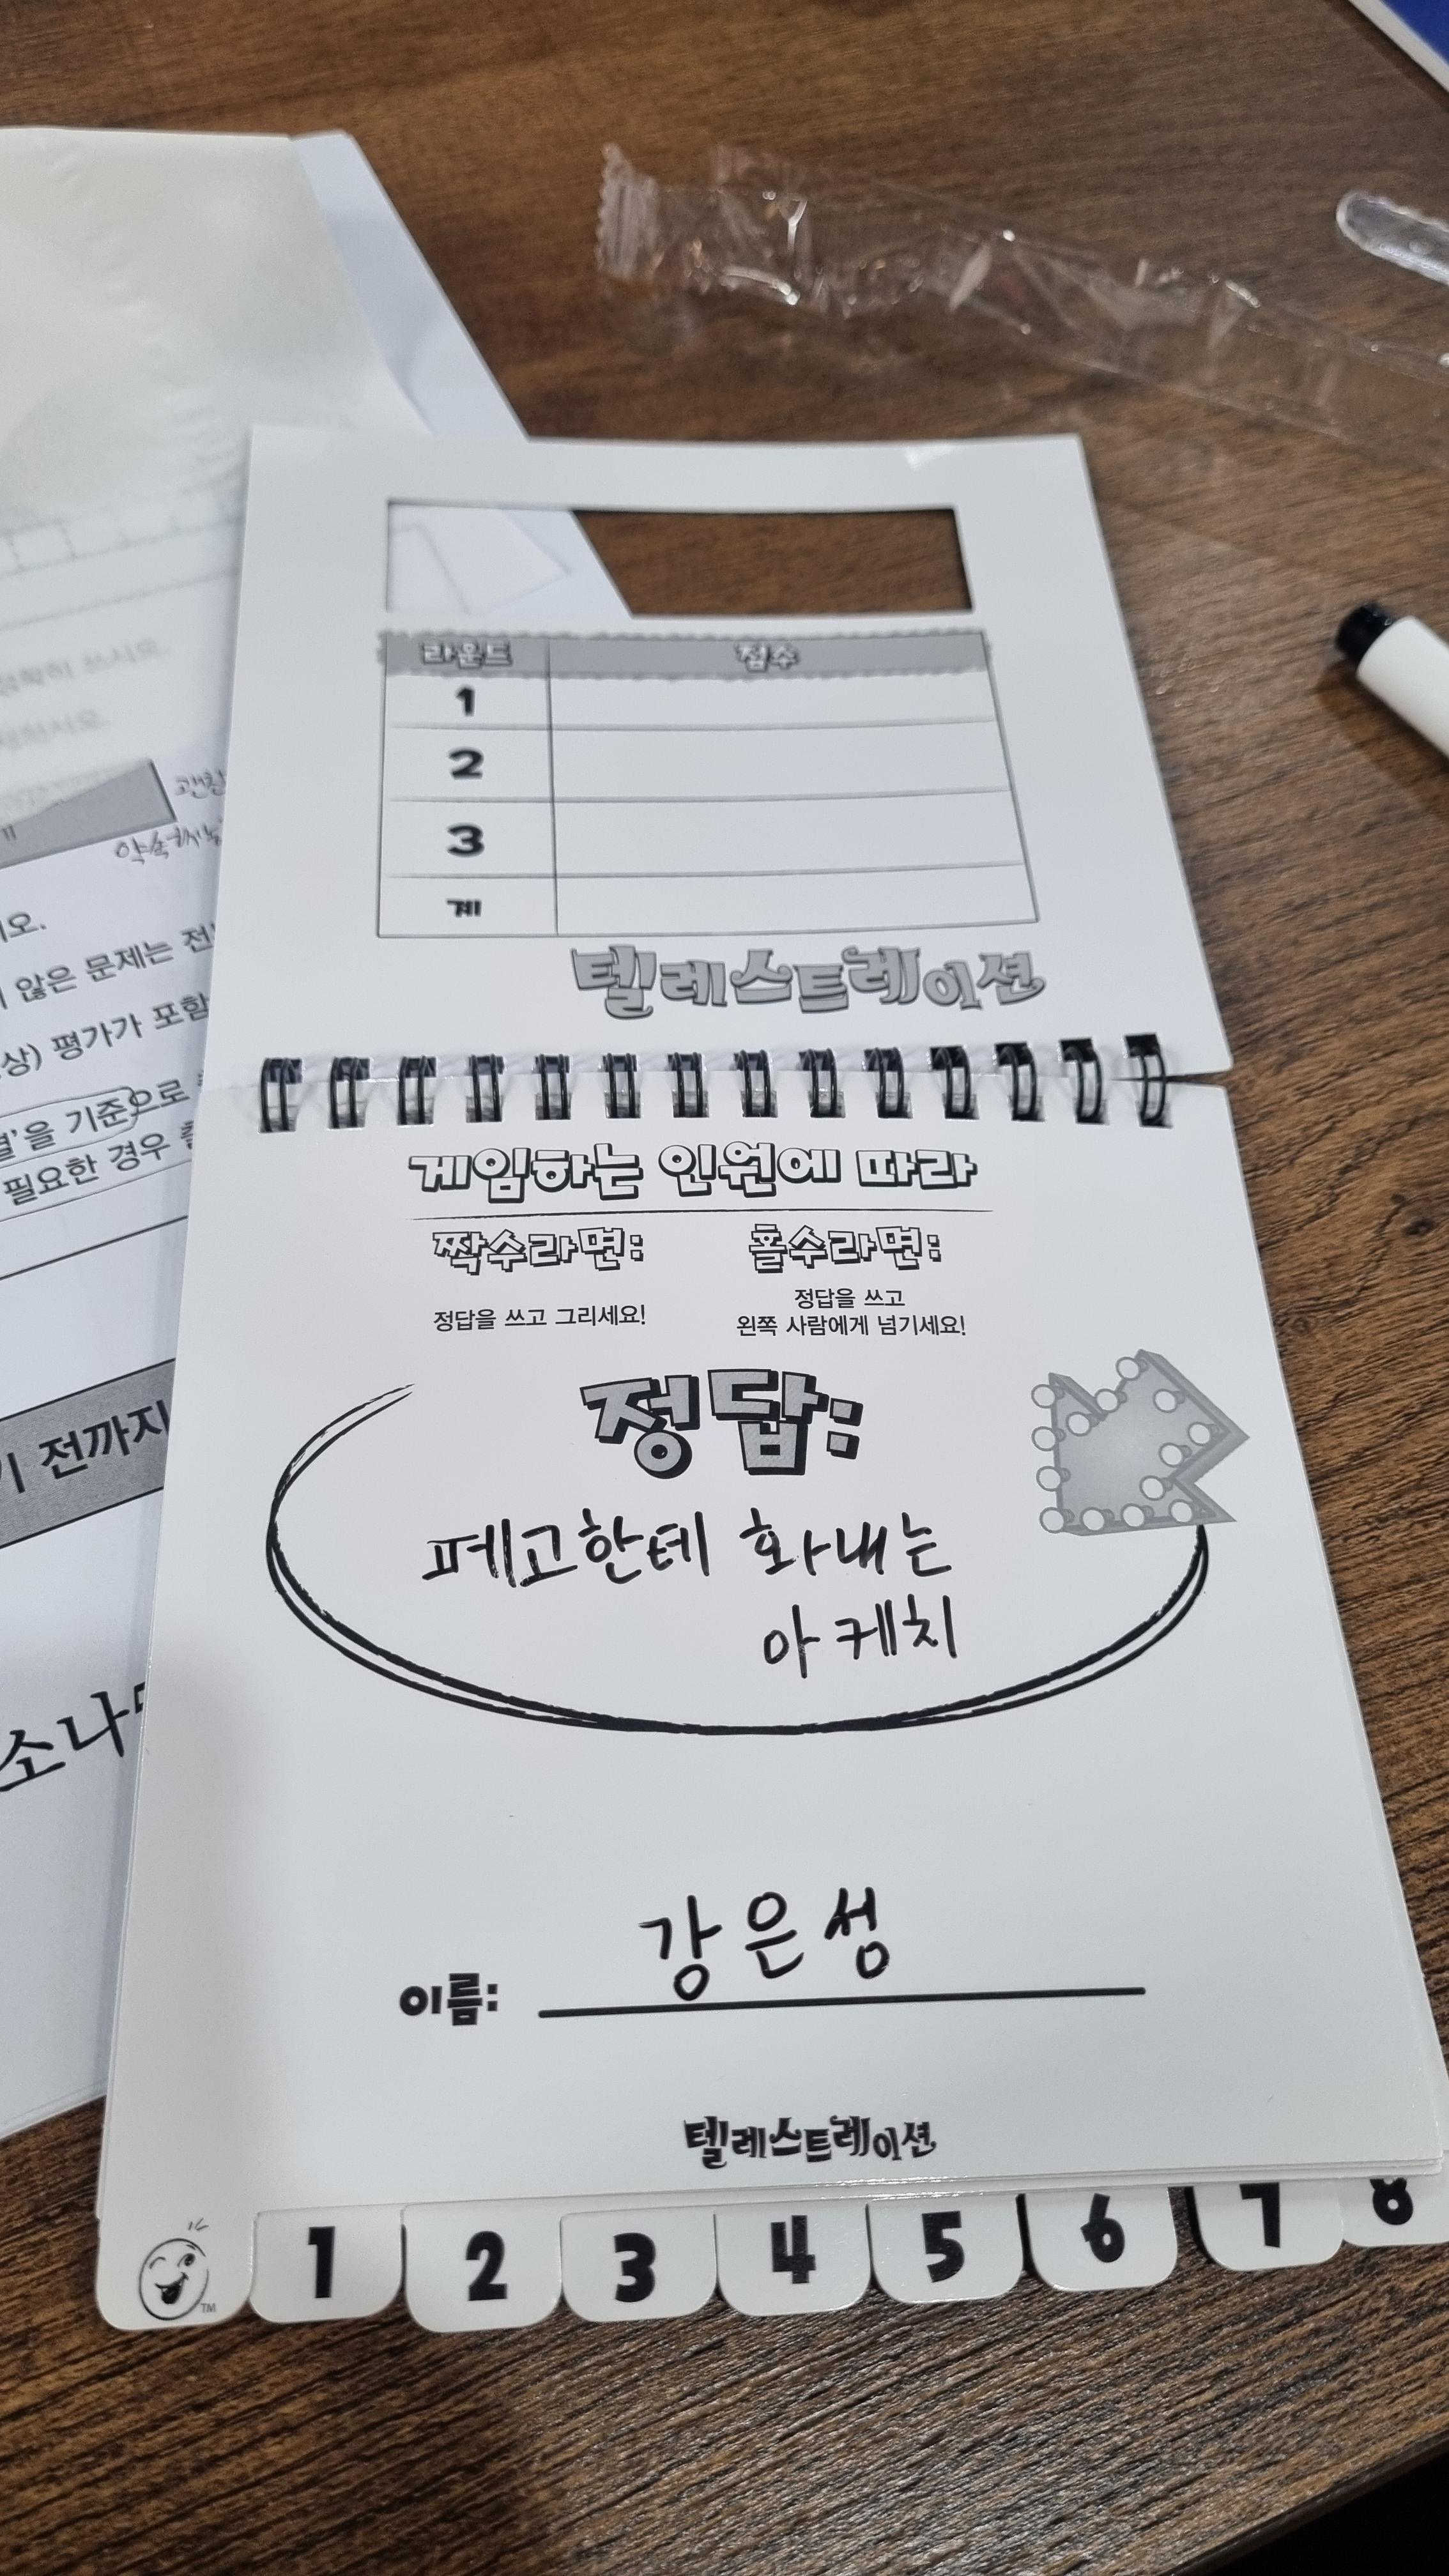 정확히 쓰시오.
오.
않은 문제는 전
상) 평가가 포함
을 기준으로
필요한 경우
기 전까지
소나
라운드 점수
1
2
3
계
텔레스트레이션
게임하는 인원에 따라
짝수라면: 홀수라면:
정답을 쓰고 그리세요! 정답을 쓰고
왼쪽 사람에게 넘기세요!
정답:
페고한테 화내는
아케치
강은성
이름:
텔레스트레이션
TM 1 2 3 4 5 6 7 8